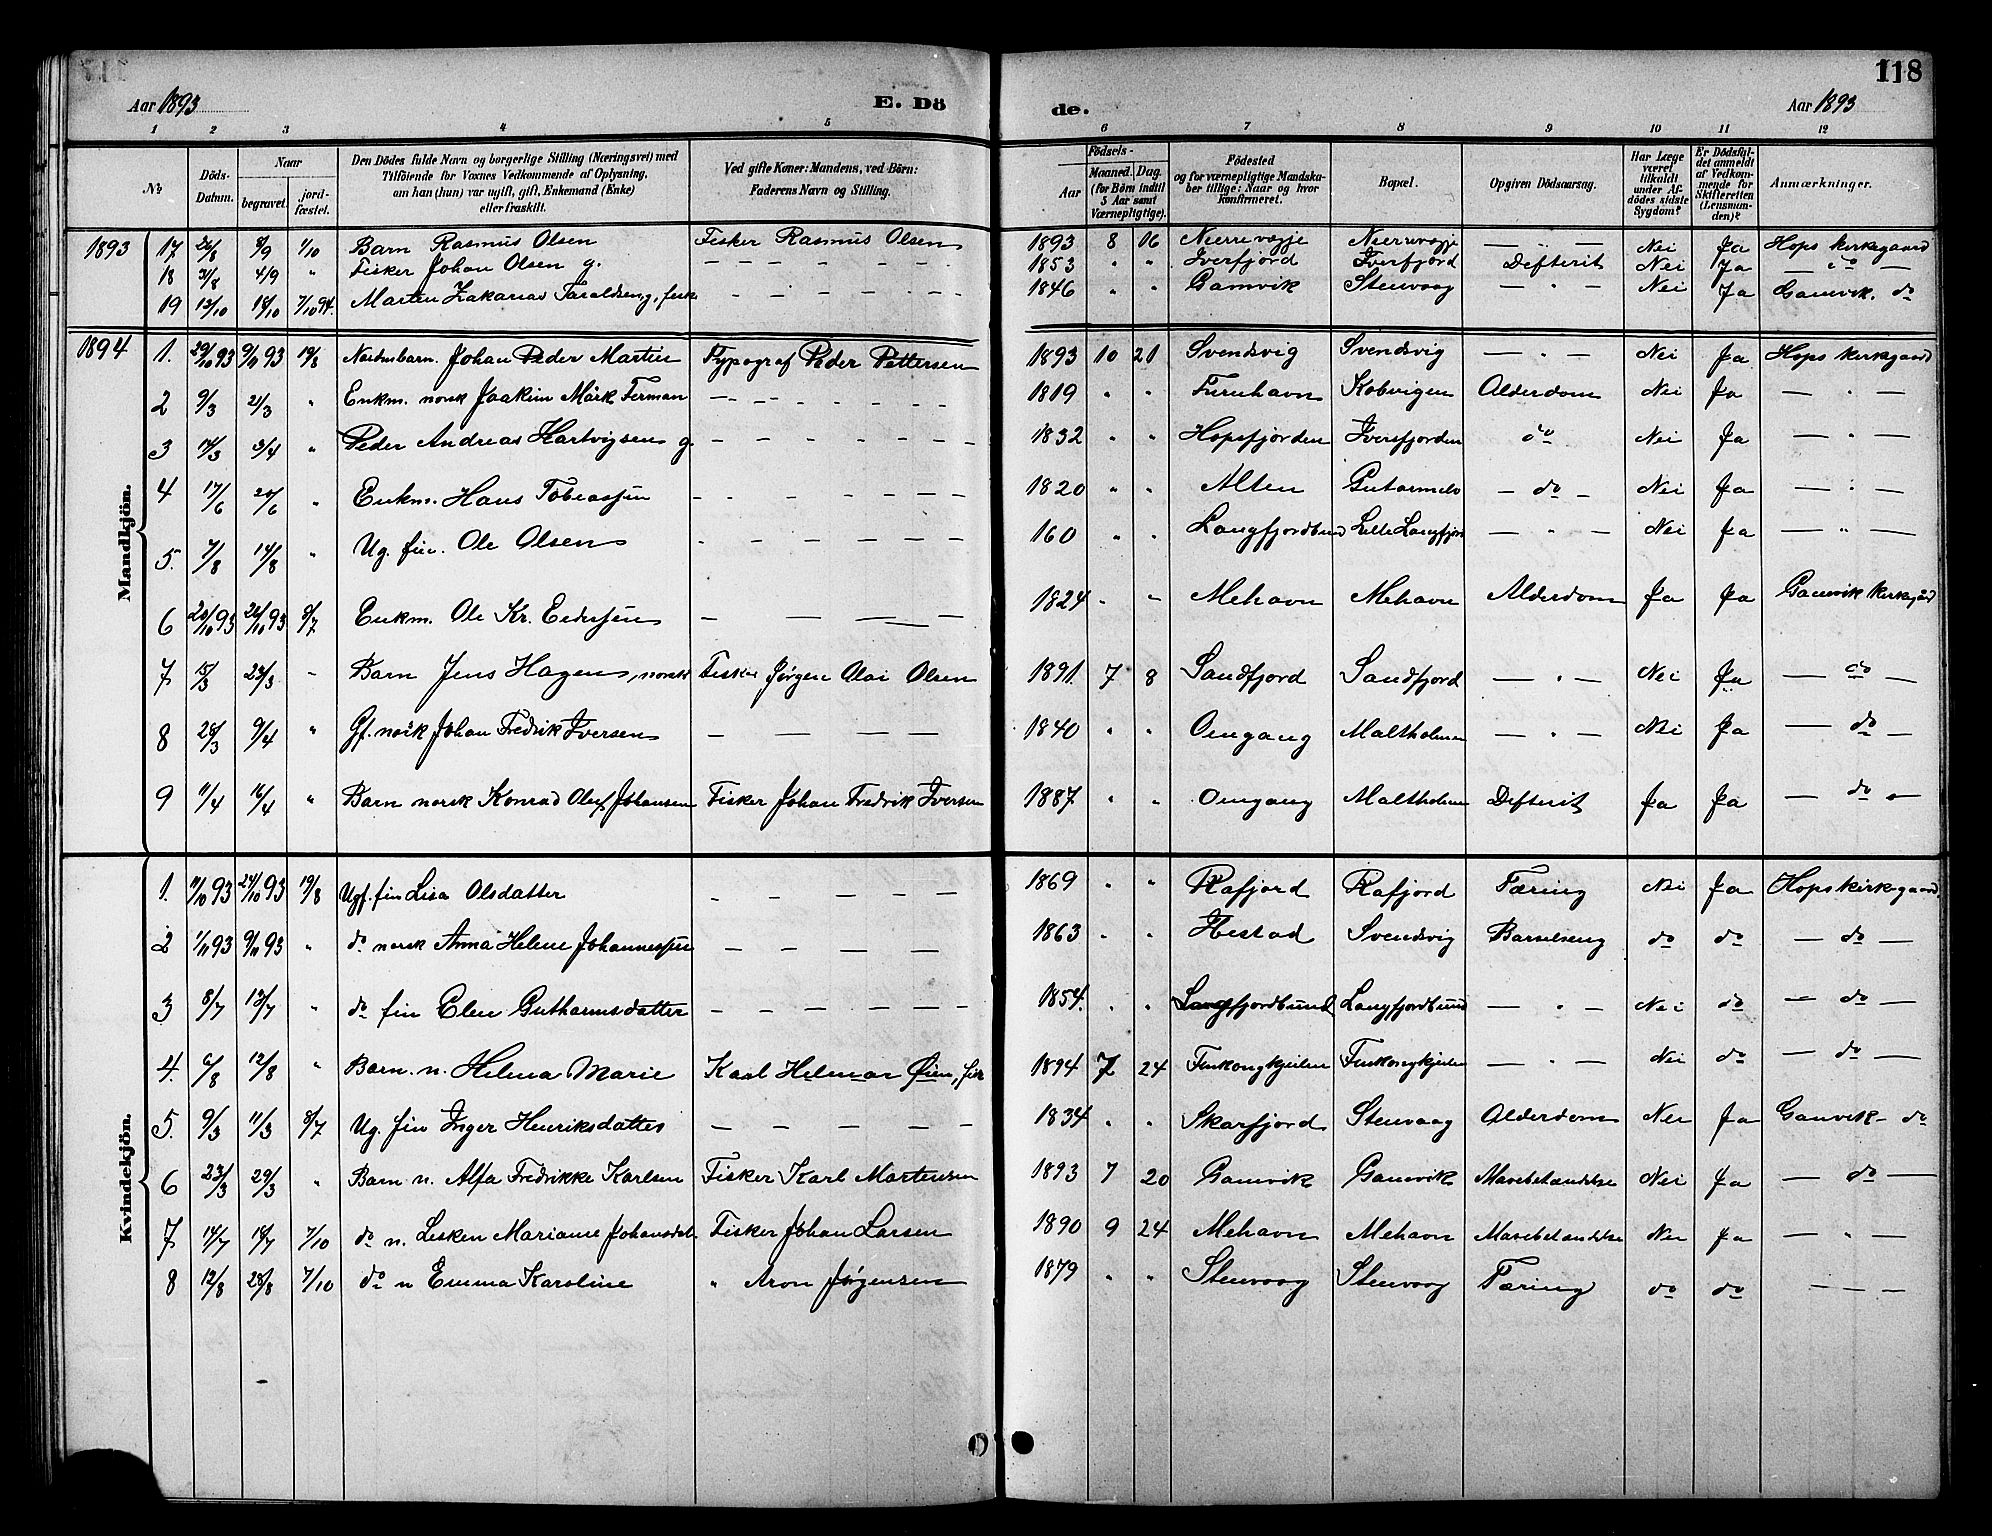 118
Aar 1893 E. Dö de. Aar 1893
1 2 3 4 5 6 7 8 9 10 11 12
No
Döds-Datum.
Naar
begravet.
jord-fæstet.
Den Dödes fulde Navn og borgerlige Stilling (Næringsvei) med
Tilföiende for Voxnes Vedkommende af Oplysning,
om han (hun) var ugift, gift, Enkemand (Enke)
eller fraskilt.
Ved gifte Koner: Mandens, ved Börn:
Faderens Navn og Stilling.
Födsels-
Aar
Maaned. Dag.
(for Börn indtil
5 Aar samt
Værnepligtige).
Födested
og for værnepligtige Mandska-
ber tillige: Naar og hvor
konfirmeret.
Bopæl.
Opgiven Dödsaarsag.
Har Læge
været
tilkaldt
under Af-
dödes sidste
Sygdom?
Er Dödsfal-
det anmeldt
af Vedkom-
mende for
Skifteretten
(Lensman-
den)?
Anmærkninger.
1893 17 26/8 8/9 1/10 Barn Rasmus Olsen Fisker Rasmus Olsen 1893 8 16 — " — Nei Ja Hops kirkegaard
18 31/8 4/9 " Fisker Johan Olsen g. — — — 1853 " " Iverfjord Iverfjord Defterit Nei Ja — do —
19 13/10 18/10 7/10 94. Martin Zakarias Taraldsen g, fisk — — — 1846 " " Gamvik Stenvaag — " — Nei Ja Gamvik. do
Mandkjön.
1894 1. 29/10 93 9/11 93 19/8 Johan Peder Martin Typograf Peder Pettersen 1893 10 21 Svendsvig Svendsvig — " — Nei Ja Hops kirkgaard
2 9/3 21/3 " Enkm. norsk Joakim Mörk Ferman — — — 1819 " " Furuhavn Kobvigen Alderdom Nei Ja — " —
3 3/4 " Peder Andreas Hartvigsen g. — — — 1832 " " Hopsfjorden Iversfjorden do Nei Ja — " —
4 17/6 20/6 " Enkm. Hans Tobiassen — — — 1820 " " Alten — do — Nei Ja — " —
5. 7/8 14/8 " Ug. fin. Ole Olsen — — — 160 " " Langfjordbund Lille Langfjor — " — Nei Ja — " —
6 20/10 93 26/10 93 8/7 Enkm. Ole Kr. — — — 1824 " " Mehavn Mehavn Alderdom Ja Ja Gamvik kirkegård
7 15/3 23/3 - Barn Jens Hagen, norsk Fisker Jørgen Olai Olsen 1891. 7 8 Sandfjord Sandfjord — " — Nei Ja — do —
8 28/3 9/4 " Gf. norsk Johan Fredrik Iversen — — — 1840 " " Omgang Maltholmen — " — Nei Ja — do —
9 11/4 16/4 " Barn norsk Konrad Oluf Johansen Fisker Johan Fredrik Iversen 1887 " " Omgang Maltholmen Defterit Ja Ja — do —
Kvindekjön.
1. 11/10 93 24/10 93 19/8 Ugf. fin Lisa Olsdatter — — — 1869 " " Rafjord Rafjord Tæring Nei Ja Hops kirkegaard
2 1/11 93 9/11 93 " do norsk Anna Helene Johannessen — — — 1863 " " Hestad Svendsvig Barselseng do do — do —
3 8/7 13/7 " do fin Elen Guthormsdatter — — — 1854. " " Langfjordbund Langfjordbund — " — Nei do — do —
4. 6/8 12/8 " Barn. n. Helena Marie Karl Helmar Øien, fisk 1894 7 24 Finkongkjeilen Finkongkjeilen — " — Nei do — do —
5. 9/3 11/3 8/7 Ug. fin Inger Henriksdatter — — — 1834 " " Skarfjord Stenvaag Alderdom Nei Ja Gamvik - do
6 23/3 29/3 " Barn n. Alfa Fredrikke Karlsen Fisker Karl Martensen 1893 7 20 Gamvik Gamvik Mavebetændelse Nei Ja — do —
7 14/7 18/7 7/10 do n. Lesken Marianne Johansdat. Fisker Johan Larsen 1890 9 24 Mehavn Mehavn Mavebetændelse Nei Ja — " —
8 12/8 28/8 7/10 do n Emma Karoline " Aron Jørgensen 1879 " " Stenvaag Stenvaag Tæring do do — — —